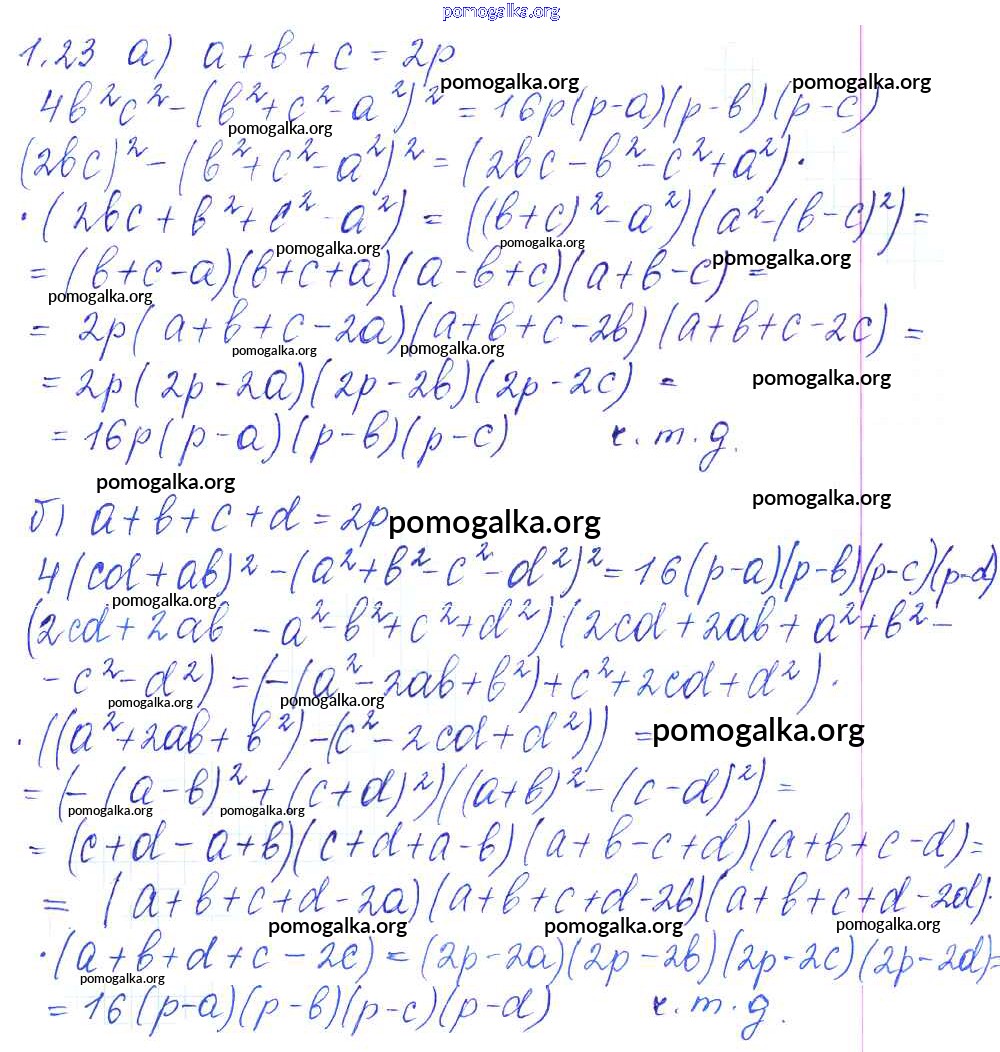 pomogalka.org
1.23 а) a + b + c = 2p
pomogalka.org pomogalka.org
4b²c² - (b² + c² - a²)² = 16p(p-a)(p-b)(p-c)
pomogalka.org
(2bc)² - (b² + c² - a²)² = (2bc - b² - c² + a²)·
·(2bc + b² + c² - a²) = ((b+c)² - a²)(a² - (b-c)²) =
pomogalka.org pomogalka.org pomogalka.org
= (b+c-a)(b+c+a)(a-b+c)(a+b-c) =
pomogalka.org
= 2p(a+b+c-2a)(a+b+c-2b)(a+b+c-2c) =
pomogalka.org pomogalka.org
= 2p(2p-2a)(2p-2b)(2p-2c) =
pomogalka.org
= 16p(p-a)(p-b)(p-c) ч.т.д.
pomogalka.org pomogalka.org
б) a + b + c + d = 2p
pomogalka.org
4(cd+ab)² - (a²+b²-c²-d²)² = 16(p-a)(p-b)(p-c)(p-d)
pomogalka.org
(2cd+2ab - a²-b²+c²+d²)(2cd+2ab+a²+b²-
-c²-d²) = (-(a²-2ab+b²)+c²+2cd+d²)·
pomogalka.org pomogalka.org
·((a²+2ab+b²)-(c²-2cd+d²)) =
pomogalka.org
= (-(a-b)²+(c+d)²)((a+b)²-(c-d)²) =
pomogalka.org pomogalka.org
= (c+d-a+b)(c+d+a-b)(a+b-c+d)(a+b+c-d) =
= (a+b+c+d-2a)(a+b+c+d-2b)(a+b+c+d-2d)·
pomogalka.org pomogalka.org pomogalka.org
·(a+b+d+c-2c) = (2p-2a)(2p-2b)(2p-2c)(2p-2d) =
pomogalka.org
= 16(p-a)(p-b)(p-c)(p-d) ч.т.д.